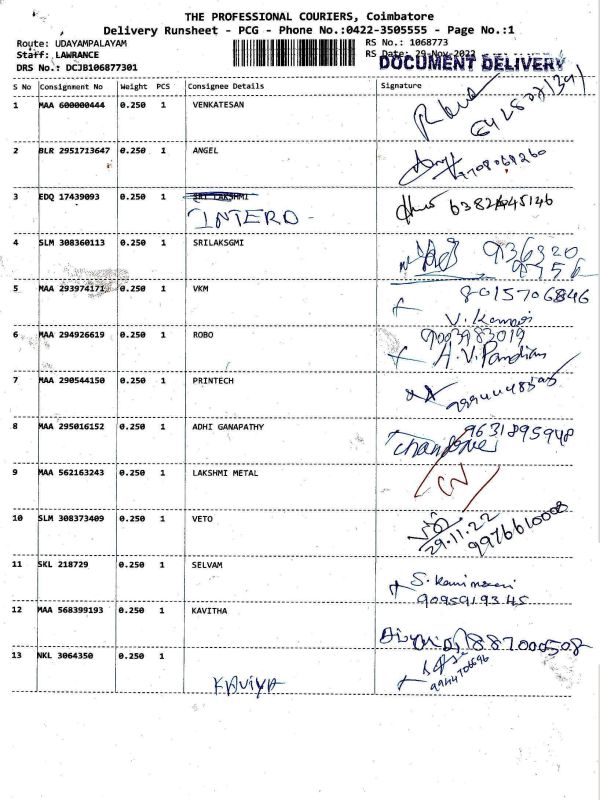 THE PROFESSIONAL COURIERS, Coimbatore
Delivery Runsheet - PCG - Phone No.:0422-3505555 - Page No.:1
Route: UDAYAMPALAYAM RS No.: 1068773
Staff: LAWRANCE RS Date: 29-Nov-2022
DRS No.: DCJB106877301 DOCUMENT DELIVERY
S No Consignment No Weight PCS Consignee Details Signature
1 MAA 600000444 0.250 1 VENKATESAN
2 BLR 2951713647 0.250 1 ANGEL
3 EDQ 17439093 0.250 1 SRI LAKSHMI
INTERO -
4 SLM 308360113 0.250 1 SRILAKSGMI 936320
9756
5 MAA 293974171 0.250 1 VKM 8015706846
6 MAA 294926619 0.250 1 ROBO 9003983019
A.V.Pandian
7 MAA 290544150 0.250 1 PRINTECH
8 MAA 295016152 0.250 1 ADHI GANAPATHY 9631895948
9 MAA 562163243 0.250 1 LAKSHMI METAL
10 SLM 308373409 0.250 1 VETO
29.11.22 9976610008
11 SKL 218729 0.250 1 SELVAM
9095919345
12 MAA 568399193 0.250 1 KAVITHA
13 NKL 3064350 0.250 1
KAVIYA